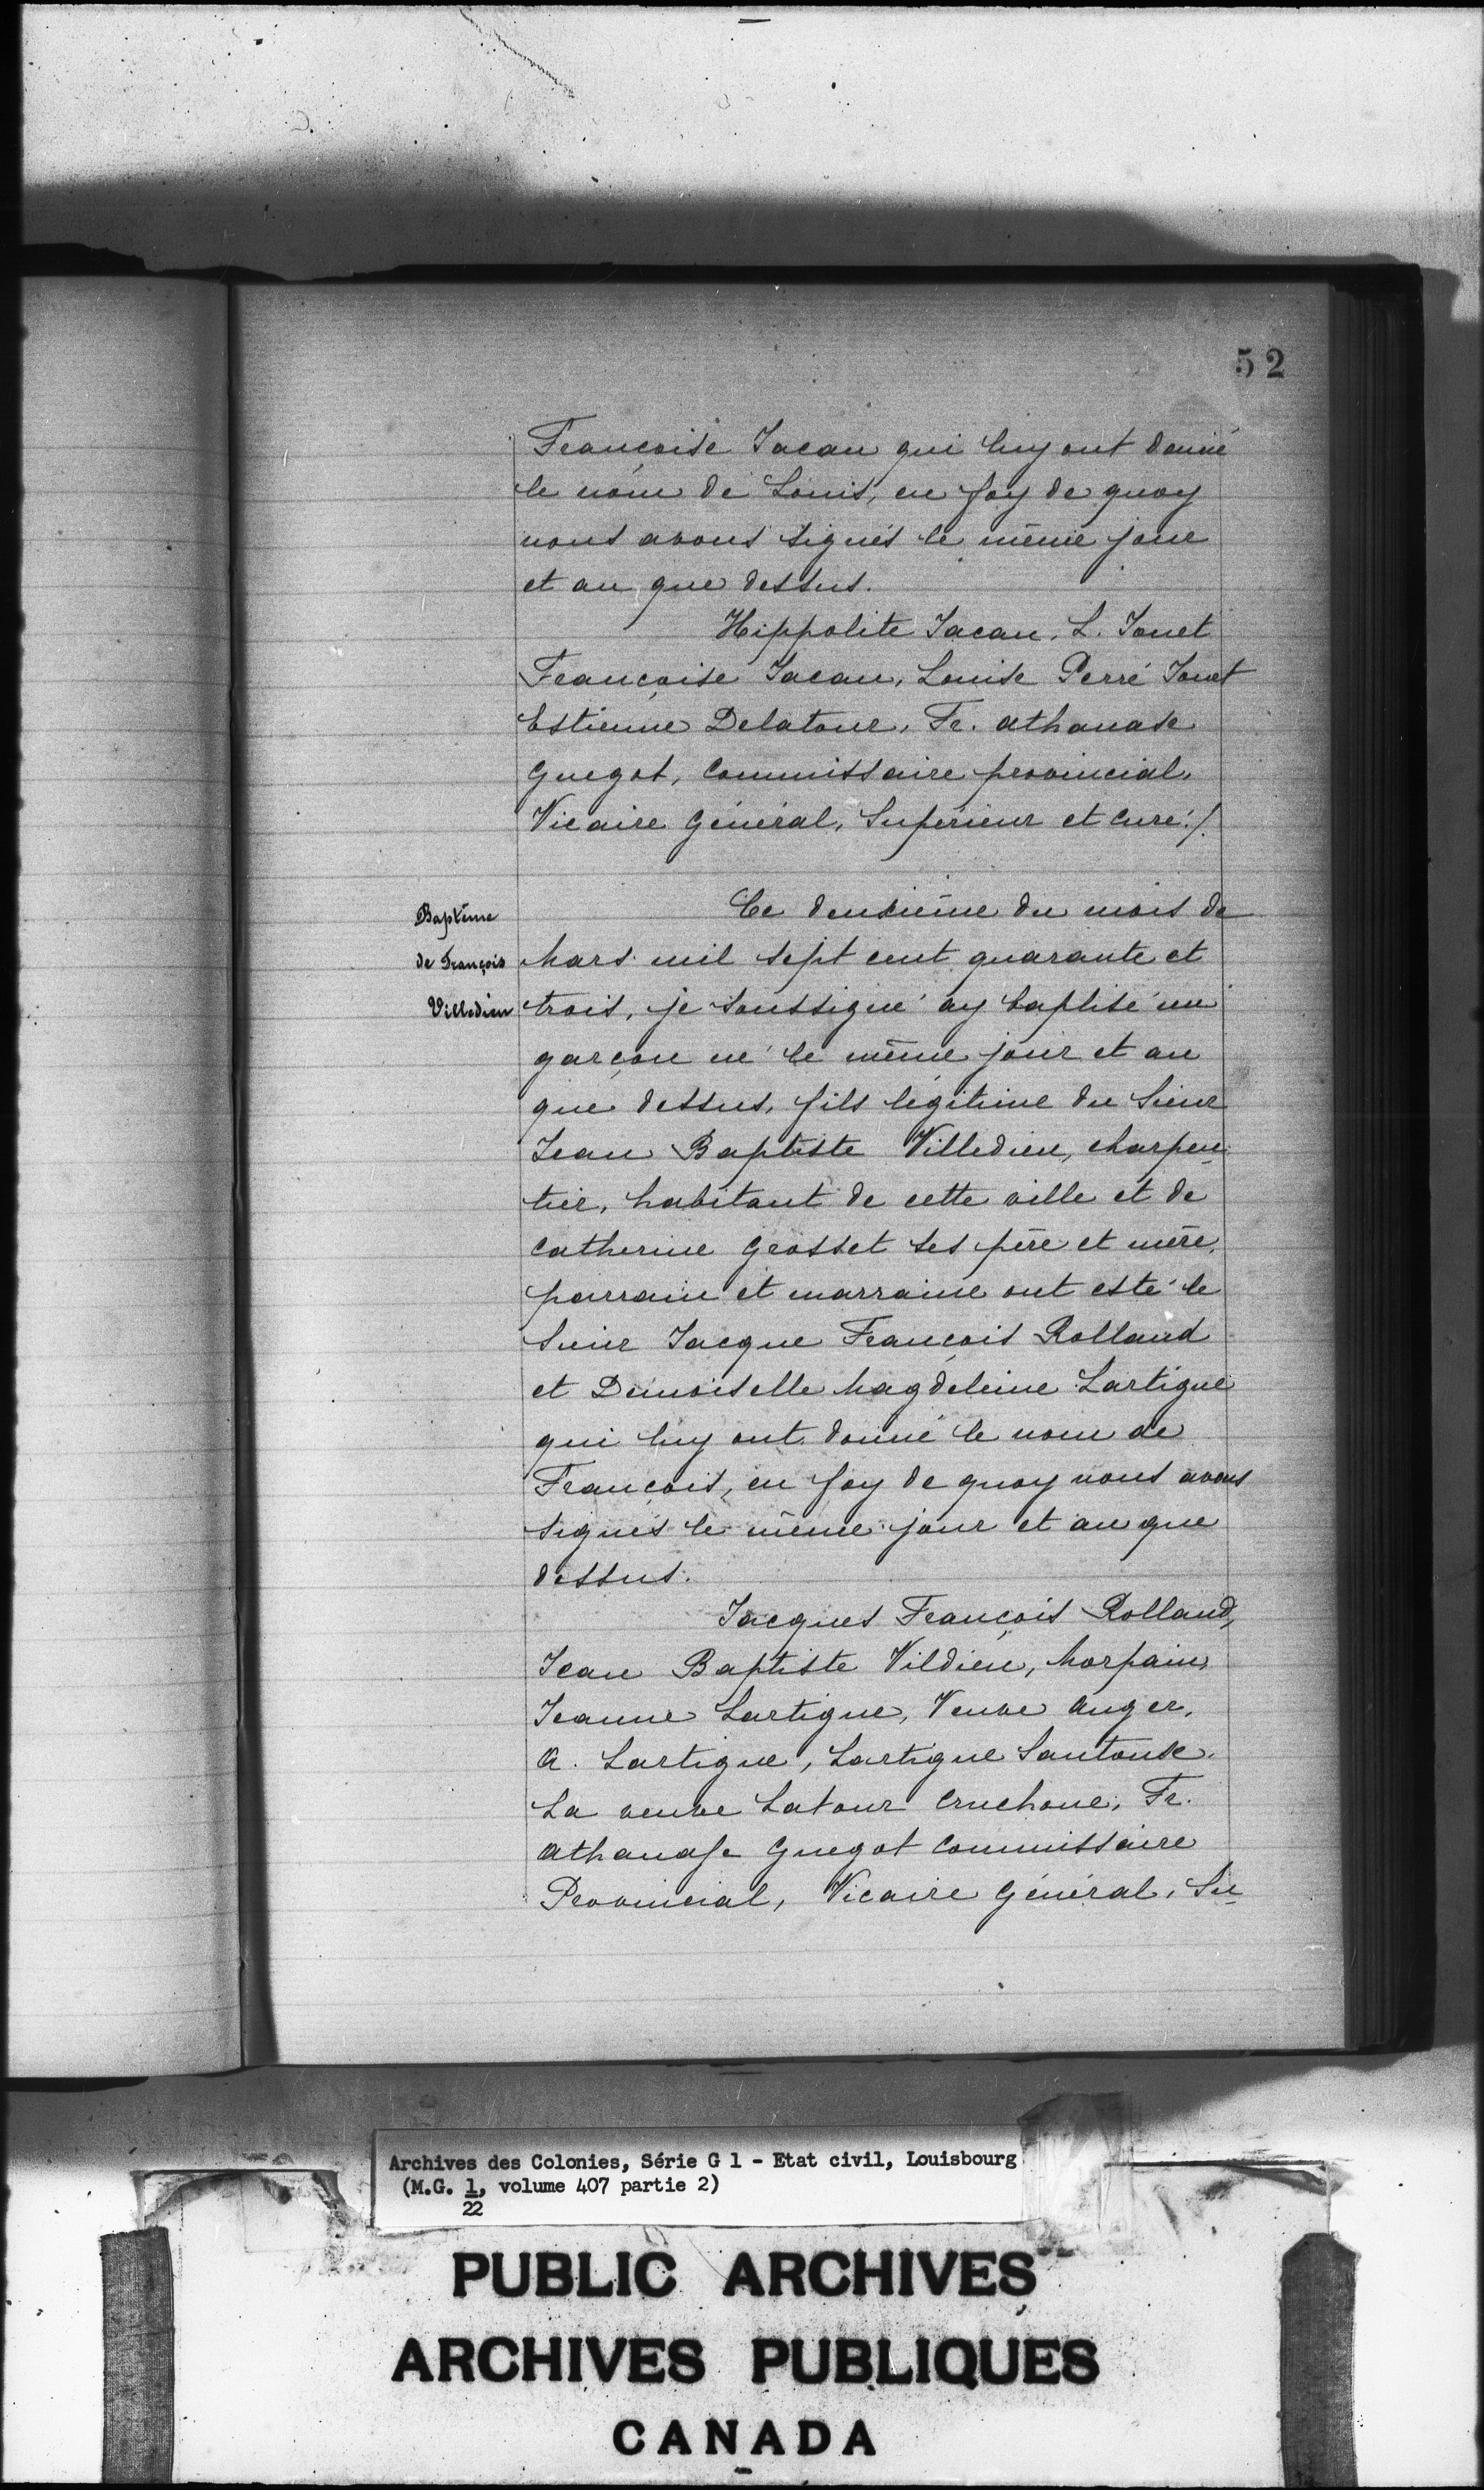 52
Françoise Jacau qui luy ont donné
le nom de Louis, en foy de quoy
nous avons signés le même jour
et an que dessus.
Hippolite Jacau, L. Jouet
Françoise Jacau, Louise Perré Jouet
Estienne Delatour, Fr. Athanase
Guegot, Commissaire provincial,
Vicaire Général, Supérieur et Curé./.
Baptême
de François
Villedieu
Ce deuxième du mois de
Mars mil sept cent quarante et
trois, je soussigné ay baptisé un
garçon né le même jour et an
que dessus, fils légitime du Sieur
Jean Baptiste Villedieu, charpen-
tier, habitant de cette ville et de
Catherine Grosset ses père et mère,
parrain et marraine ont esté le
Sieur Jacque François Rolland
et Demoiselle Magdeleine Lartigue
qui luy ont donné le nom de
François, en foy de quoy nous avons
signés le même jour et an que
dessus.
Jacques François Rolland,
Jean Baptiste Vildieu, Morpain,
Jeanne Lartigue, Veuve Auger,
A. Lartigue, Lartigue Santouse.
La veuve Latour Cruchone, Fr.
Athanase Guegot Commissaire
Provincial, Vicaire Général, Su-
Archives des Colonies, Série G 1 - Etat civil, Louisbourg
(M.G. 1, volume 407 partie 2)
22
PUBLIC ARCHIVES
ARCHIVES PUBLIQUES
CANADA